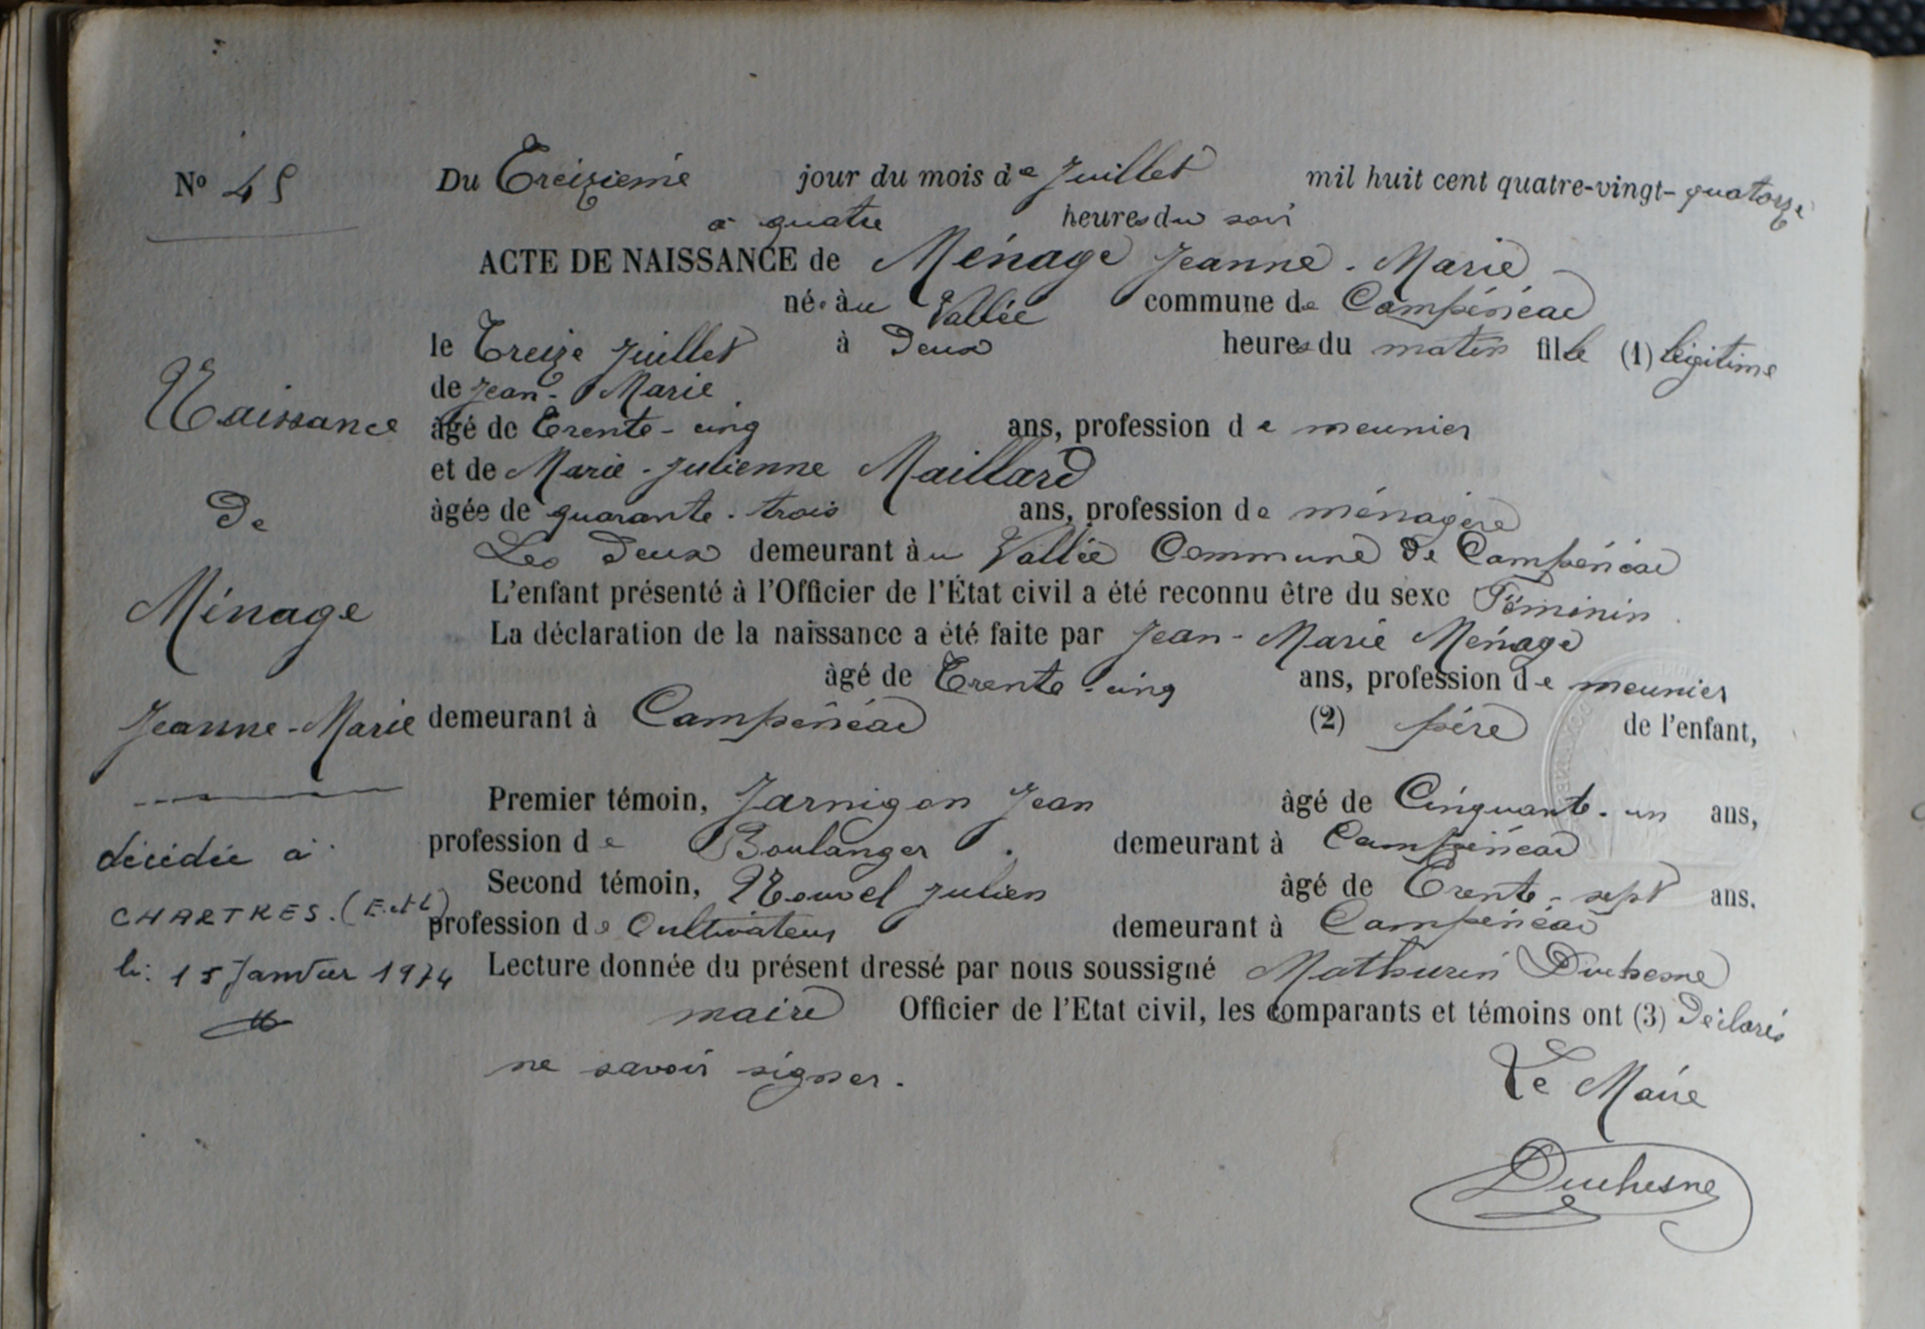 Nº 45
Du Treizième jour du mois de Juillet mil huit cent quatre-vingt-quatorze
à quatre heures du soir
ACTE DE NAISSANCE de Ménage Jeanne-Marie
née au Vallée commune de Campénéac
le Treize Juillet à Deux heures du matin fille (1) légitime
de Jean-Marie
âgé de Trente-cinq ans, profession de meunier
et de Marie-Julienne Maillard
âgée de quarante-trois ans, profession de ménagère
Les Deux demeurant au Vallée Commune de Campénéac
L'enfant présenté à l'Officier de l'État civil a été reconnu être du sexe Féminin
La déclaration de la naissance a été faite par Jean-Marie Ménage
âgé de Trente-cinq ans, profession de meunier
demeurant à Campénéac (2) père de l'enfant,
Premier témoin, Jarnigon Jean âgé de Cinquante-un ans,
profession de Boulanger demeurant à Campénéac
Second témoin, Nouvel Julien âgé de Trente-sept ans.
profession de Cultivateur demeurant à Campénéac
Lecture donnée du présent dressé par nous soussigné Mathurin Duchesne
maire Officier de l'Etat civil, les comparants et témoins ont (3) Déclarés
ne savoir signer.
Le Maire
Duchesne
Naissance
De
Ménage
Jeanne-Marie
décédée à
CHARTRES. (E. et L)
le: 15 Janvier 1974